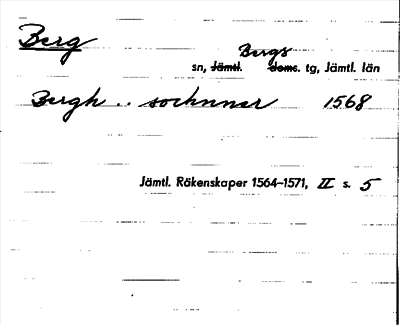 Berg
Bergs
sn, Jämtl. doms. tg, Jämtl. län
Bergh .. sochnner 1568
Jämtl. Räkenskaper 1564–1571, II s. 5